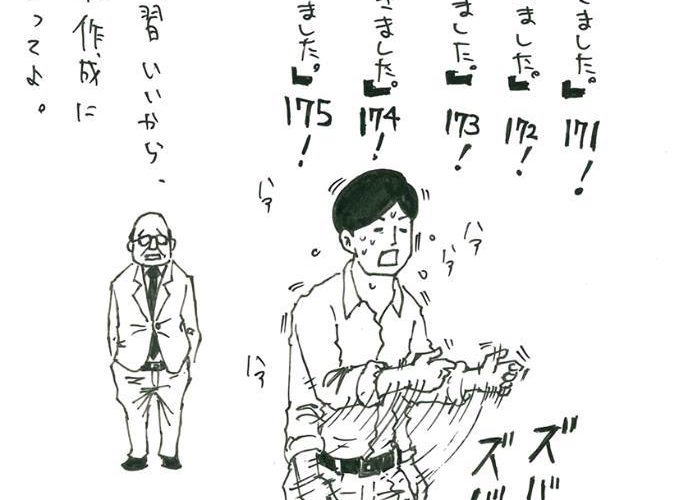 ました。」171!
ました。」172!
ました。」173!
ました。」174!
ました。」175!
ハァ
ハァ
ハァ
ハァ
ズ
ズ
習いいから、
作成に
ってよ。